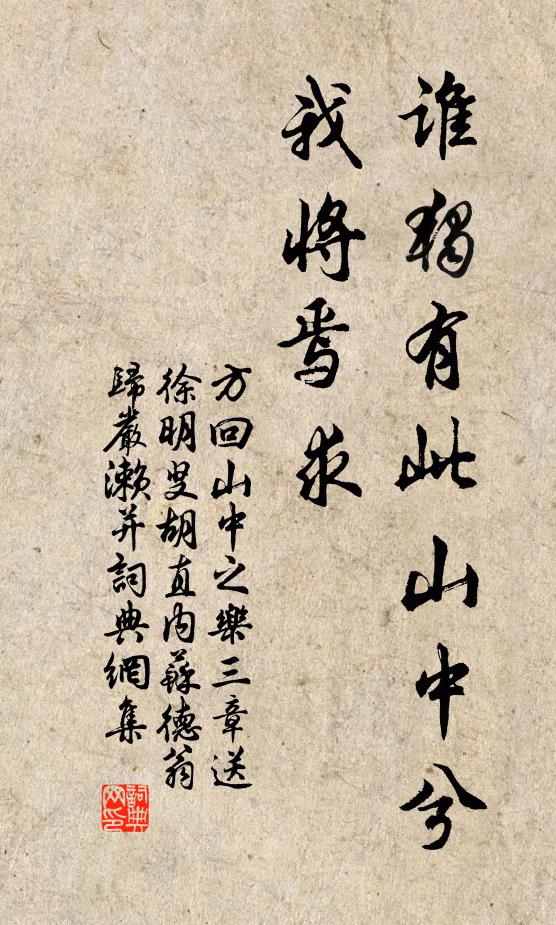 誰獨有此山中兮
我將焉求
方回山中之樂三章送
徐明叟胡直内蘇德翁
歸嚴瀨并詞典網集
詞典
网印